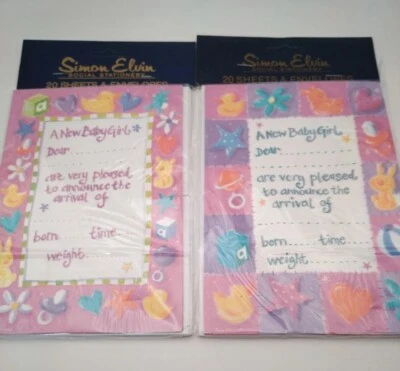 Simon Elvin
SOCIAL STATIONERY
20 SHEETS & ENVELOPES
A New Baby Girl
Dear
are very pleased
to announce the
arrival of
born time
weight
a
Simon Elvin
SOCIAL STATIONERY
20 SHEETS & ENVELOPES
A New Baby Girl
Dear
are very pleased
to announce the
arrival of
born time
weight
a